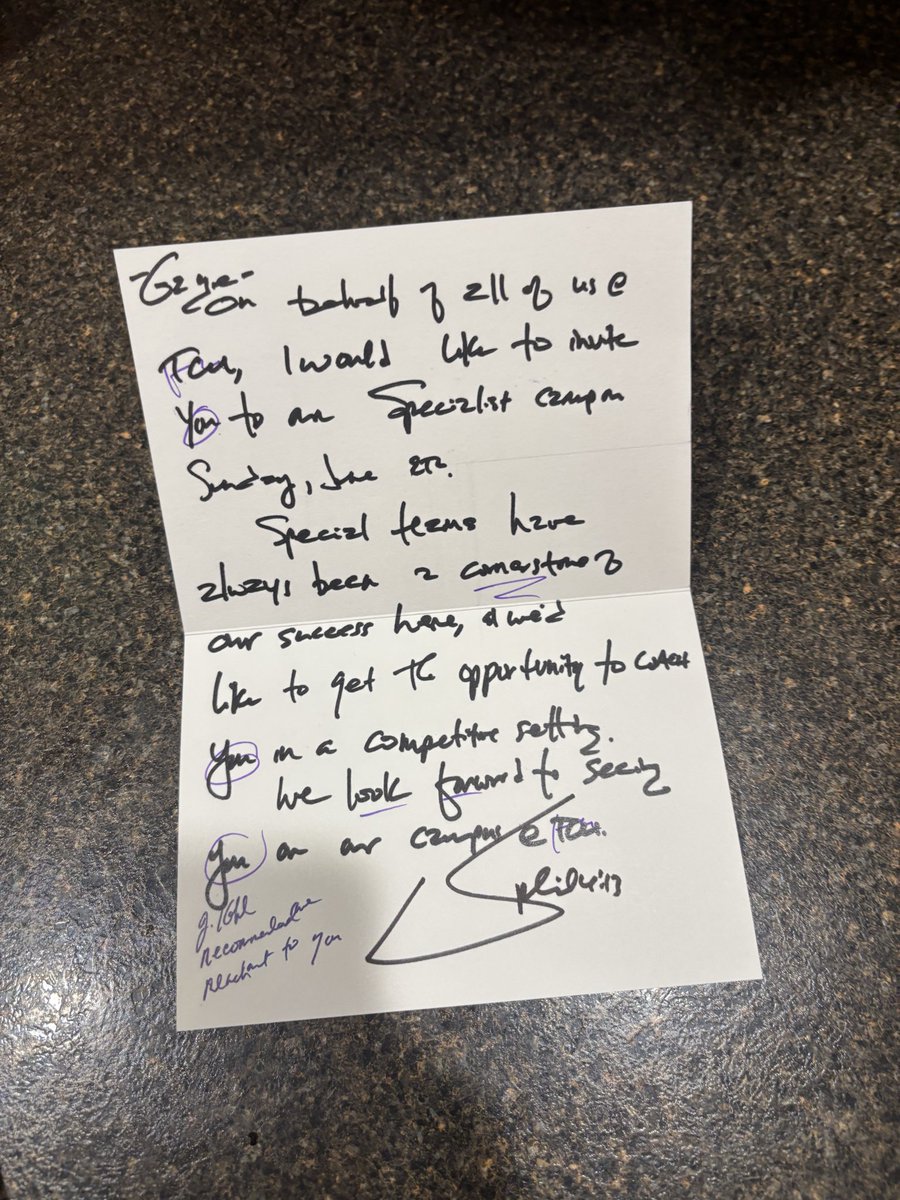 -Gage-
On behalf of all of us @
TCU, I would like to invite
you to our Specialist camp on
Sunday, June
Special teams have
always been a cornerstone of
our success here, & we'd
like to get the opportunity to coach
you in a competitive setting.
We look forward to seeing
you on our campus @ TCU.
recommended we
reach out to you